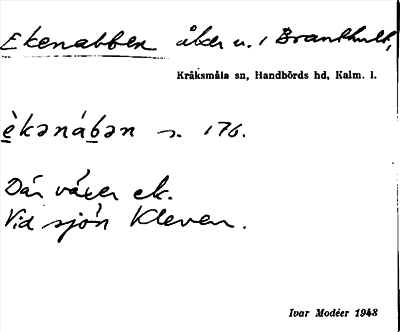 Ekenabben åker u. / Branthult,
Kråksmåla sn, Handbörds hd, Kalm. l.
èkənábən s. 176.
Där växer ek.
Vid sjön Kleven.
Ivar Modéer 1948